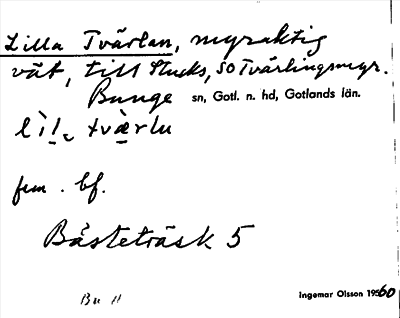 Lilla Tvärlan, myraktig
vät, till Stucks, SO Tvärlingsmyr.
Bunge sn, Gotl. n. hd, Gotlands län.
lìl̲a tvæ̀rlu
fem. bf.
Bästeträsk 5
Bu II
Ingemar Olsson 1960